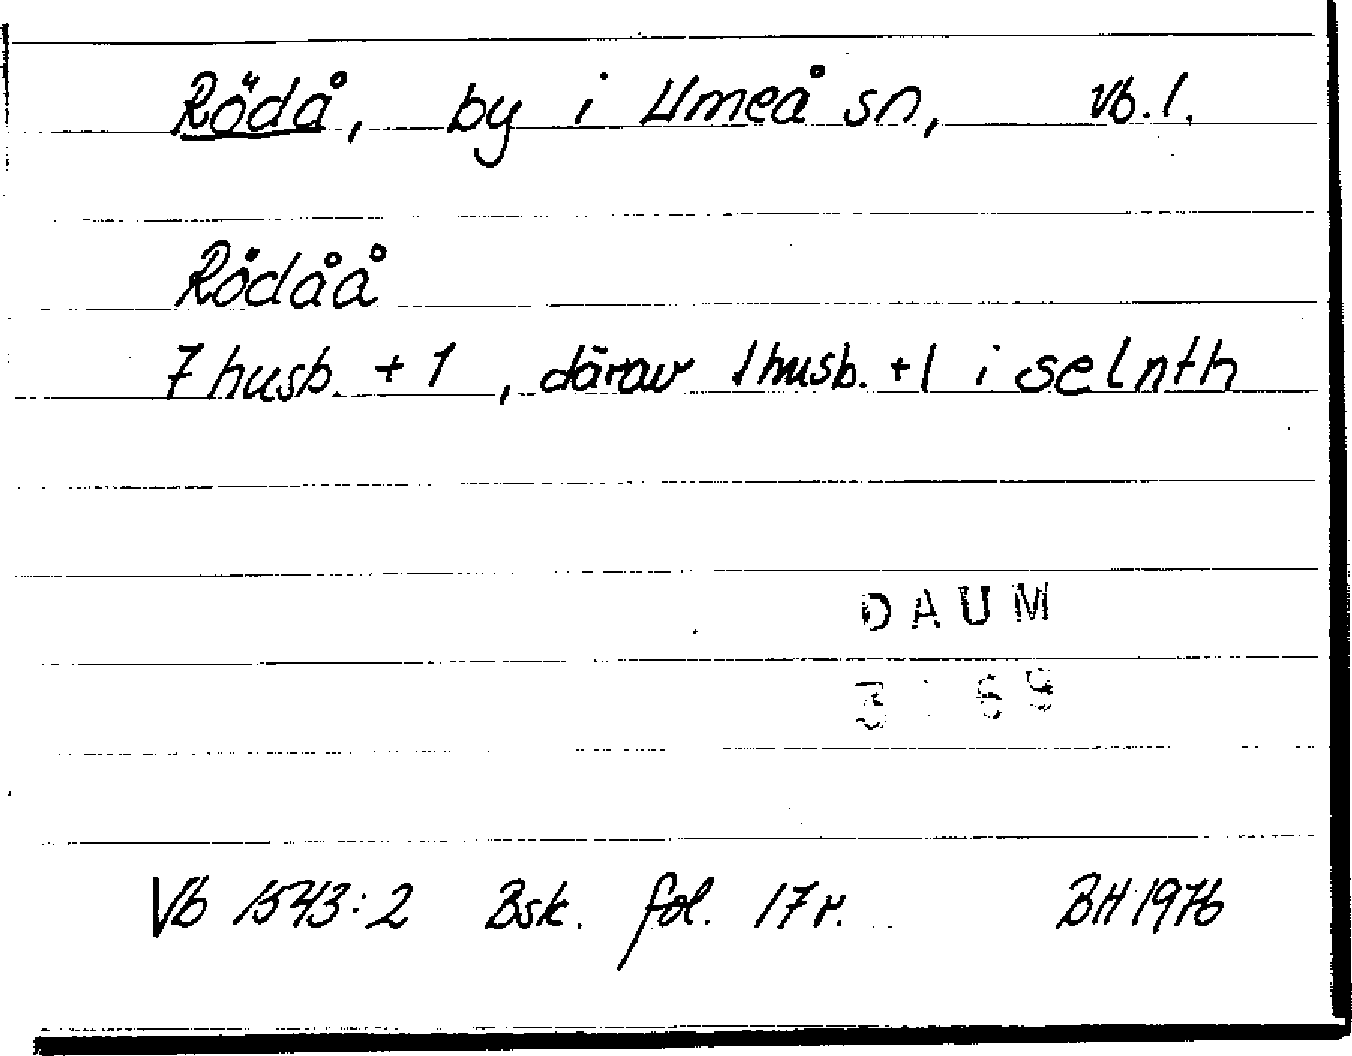 Rödå, by i Umeå sn, Vb. l.
Rödåå
7 husb. + 1, därav 1 husb. + 1 i selnth
DAUM
3 69
Vb 1543:2 Bsk. fol. 17 r. BH 1976